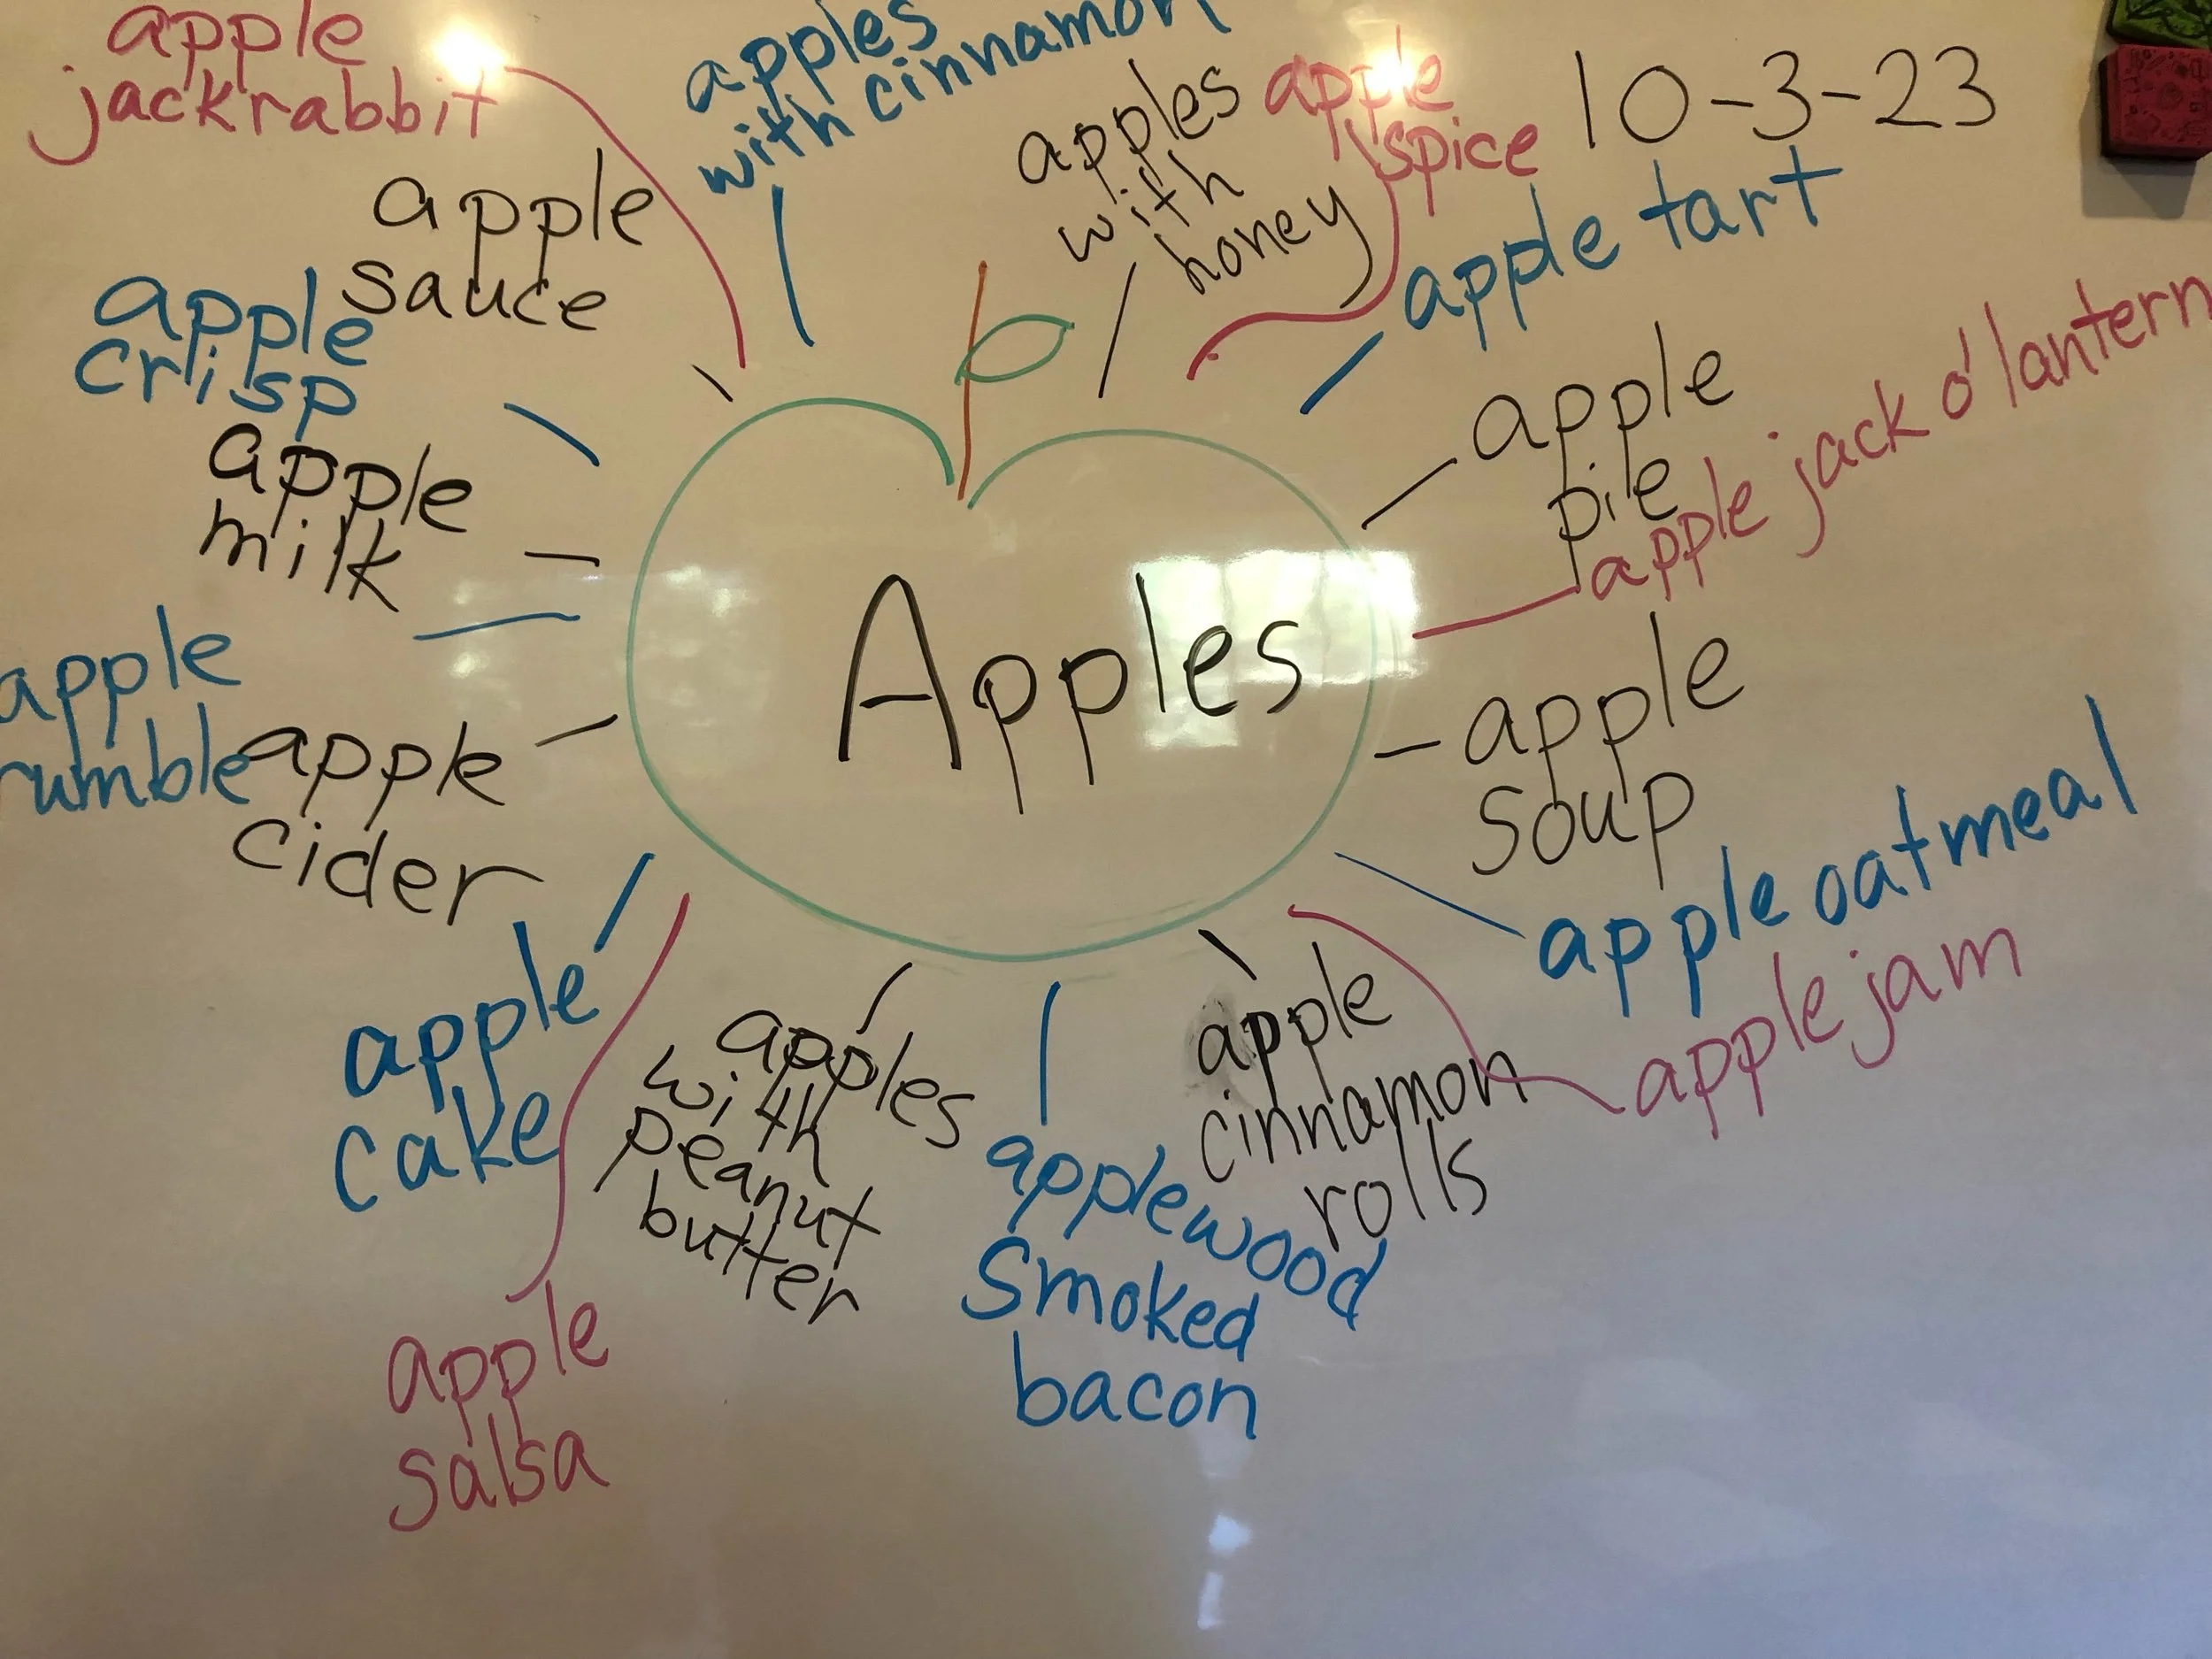 apple
jackrabbit
apples
with cinnamon
apples
with
honey
apple
spice
10-3-23
apple tart
apple
sauce
apple
crisp
apple
milk
apple
rumble
apple
cider
Apples
apple
pie
apple jack o'lantern
apple
soup
apple oatmeal
apple jam
apple
cinnamon
rolls
applewood
smoked
bacon
apples
with
peanut
butter
apple
cake
apple
salsa